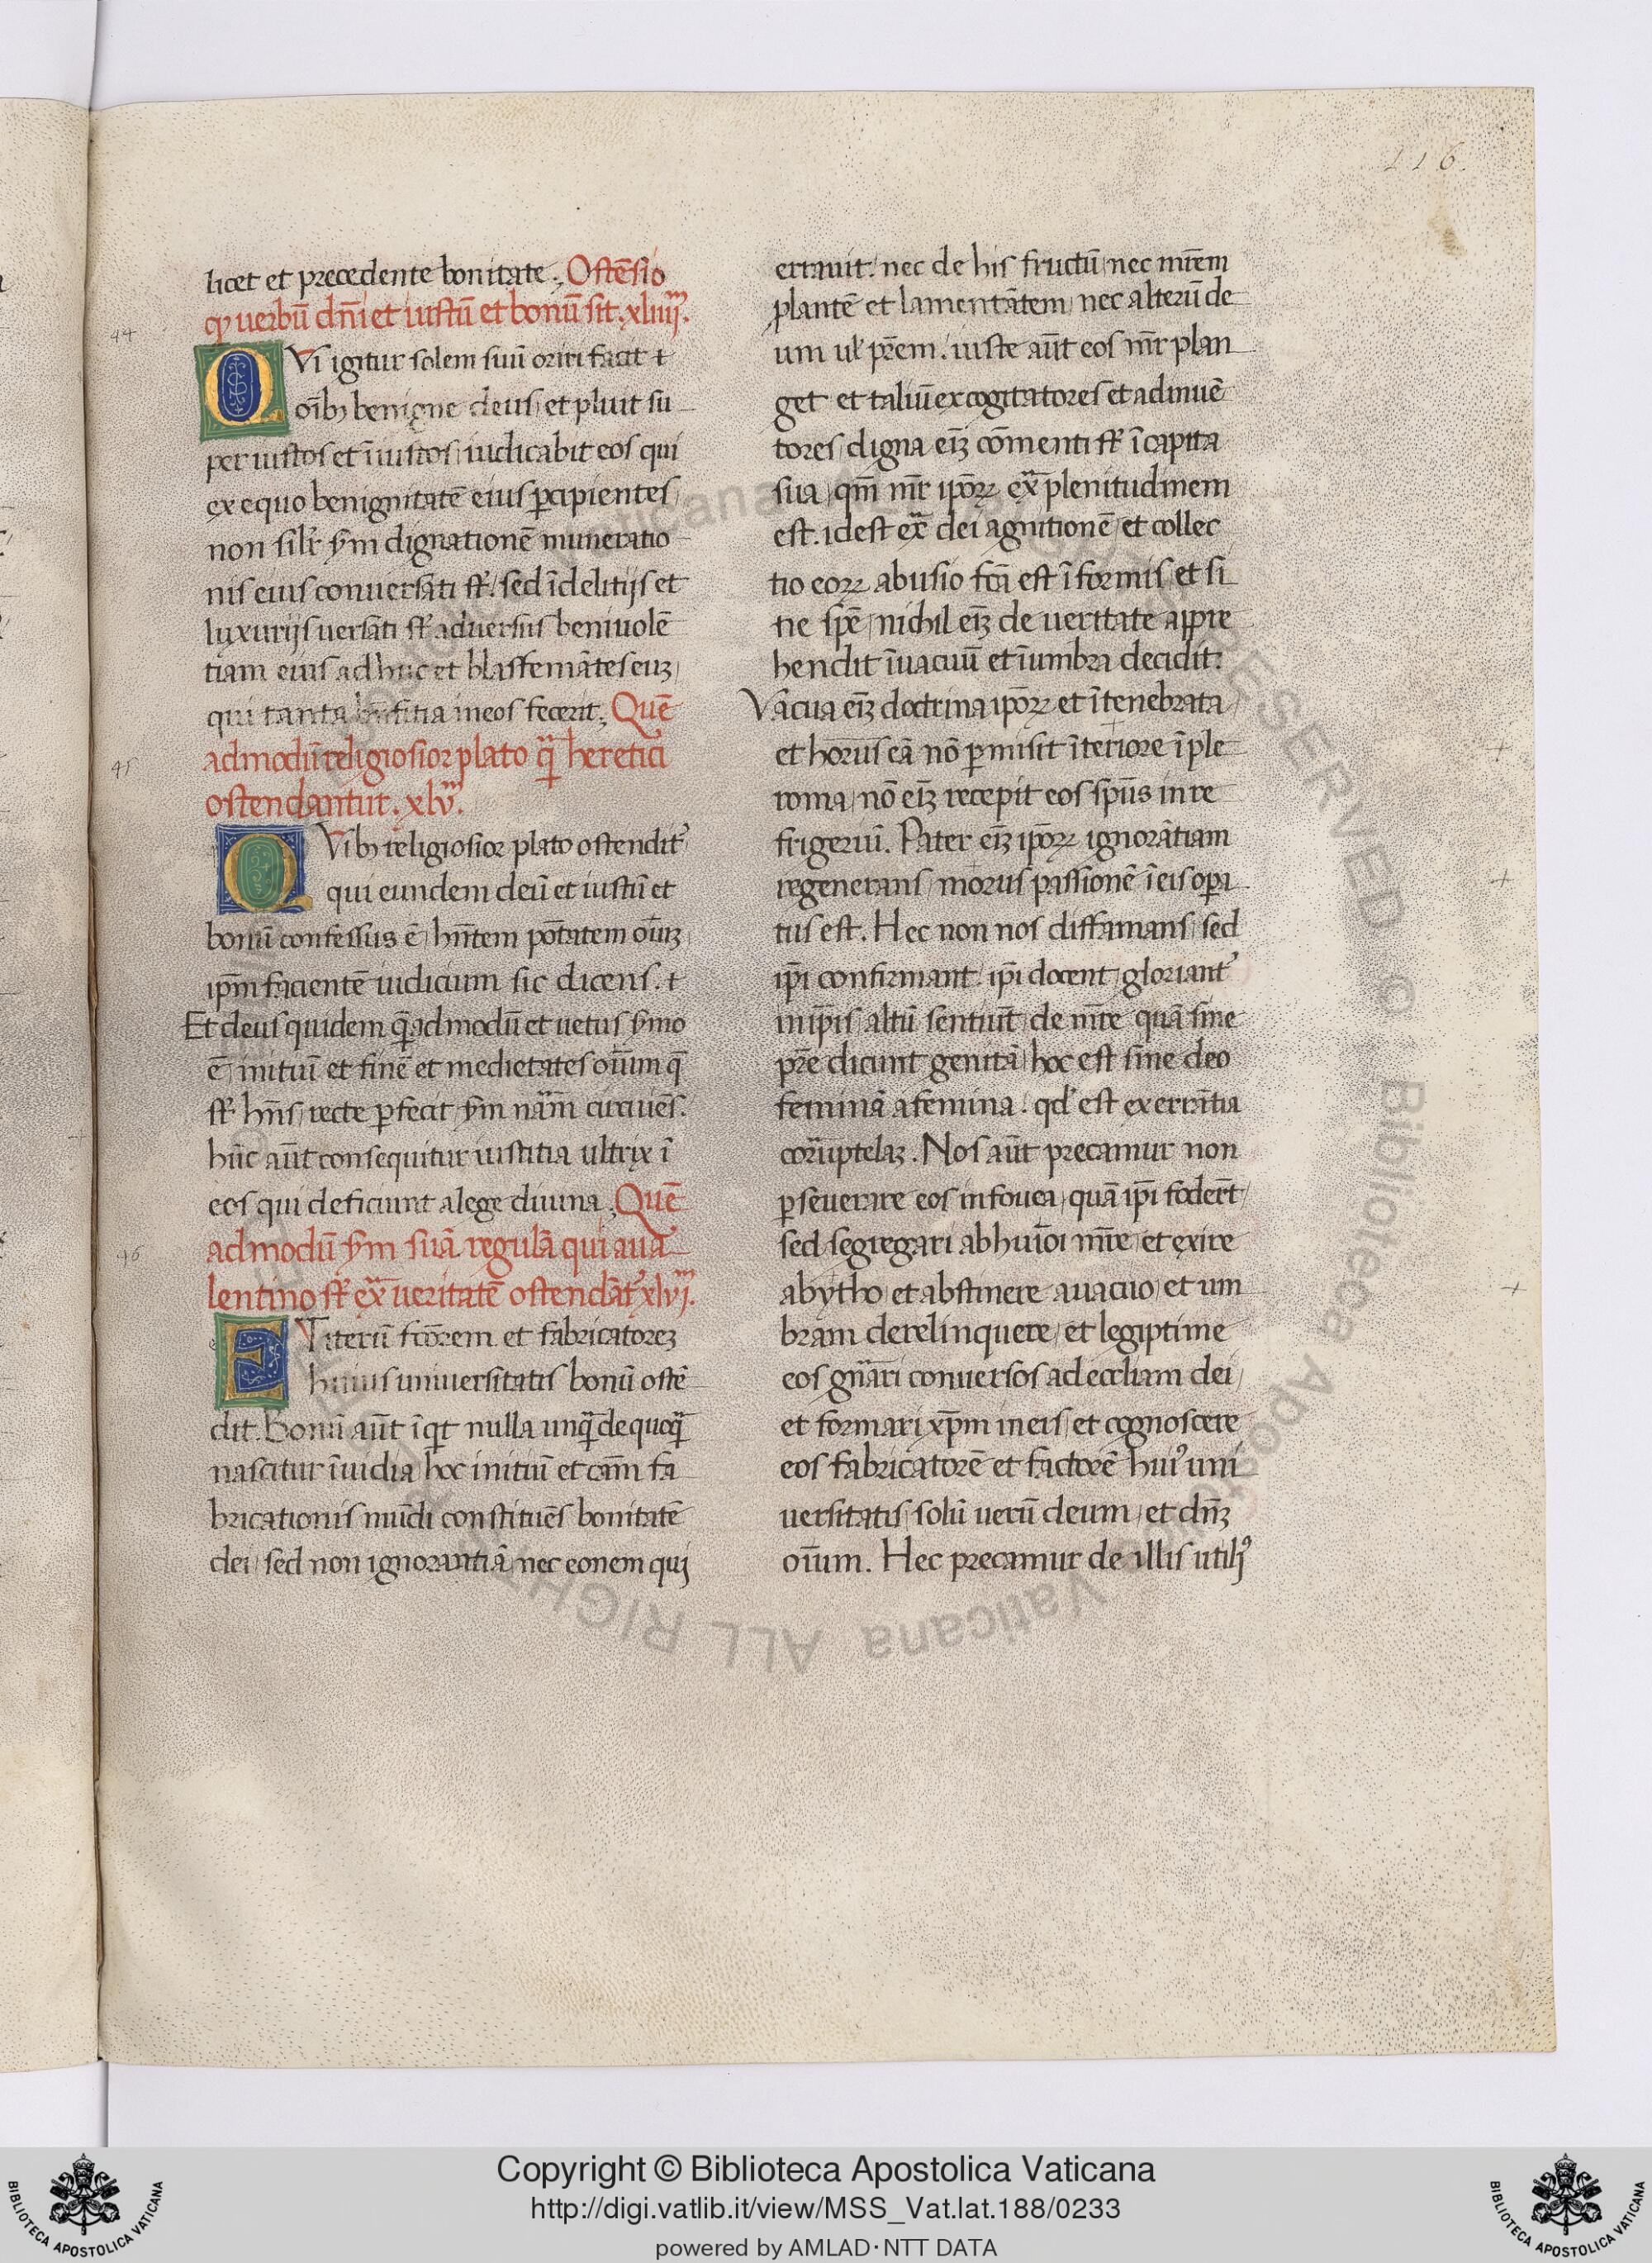 116.
licet et precedente bonitate. Ostēsio
ꝙ uerbū dn̄i et iustū et bonū sit. xliiij.
44
QVi igitur solem suū oriri facit ⁊
oībꝫ benigne deus, et pluit su
per iustos et īiustos, iudicabit eos qui
ex equo benignitatē eius ꝑcipientes,
non silr̄ s̄m dignationē muneratio
nis eius conuersāti st̄, sed ī delitijs et
luxurijs uersāti st̄ aduersus beniuolē
tiam eius adhuc et blasfemātes euꝫ,
qui tanta bn̄fitia in eos fecerit. Quē
admodū religiosior plato q̄ heretici
45
ostendantur. xlv.
QVibꝫ religiosior plato ostendit᷒
qui eundem deū et iustū et
bonū confessus ē, hn̄tem pōtatem oīuꝫ,
ip̄m facientē iudicium sic dicens. ⁊
Et deus quidem q̄admodū et uetus s̄mo
ē, initiū et finē et medietates oīum q̄
st̄ hn̄s, recte ꝑfecit s̄m nāɫ̄m circuiēs.
hūc aūt consequitur iustitia ultrix ī
eos qui deficiunt a lege diuina. Quē
admodū s̄m suā regulā qui a ua
46
lentino st̄ ex̄ ueritatē ostendāt᷒ xlvj.
ETiterū fcōrem et fabricatoreꝫ
huius uniuersitatis bonū ostē
dit. Bonū aūt īqt nulla unq̄ de quoq̄
nascitur īuidia, hoc initiū et cām fa
bricationis mūdi constituēs bonitatē
dei, sed non ignorantiā, nec eonem qui
errauit. nec de his fructū, nec mr̄em
plantē et lamentātem, nec alterū de
um ul̄ pr̄em. iuste aūt eos mr̄ plan
get et taliū excogitatores et adinuē
tores, digna eīꝫ cōmenti st̄ ī capita
sua, qm̄ mr̄ ipōꝝ ex̄ plenitudinem
est. idest ex̄ dei agnitionē, et collec
tio eoꝝ abusio fcā est īformis, et si
ne spē, nichil eīꝫ de ueritate appre
hendit ī uacuū et ī umbra decidit.
Vācua eīꝫ doctrina ipōꝝ et ītenebrata,
et horus eā nō ꝑmisit īteriore ī ple
roma, nō eīꝫ recepit eos sp̄us in re
frigeriū. Pater eīꝫ ipōꝝ ignorātiam
regenerans, morus passionē ī eis opa
tus est. Hec non nos diffamans, sed
ip̄i confirmant, ip̄i docent, gloriant᷒
in ip̄is, altū sentiūt, de mr̄e quā sine
pr̄e dicunt genitā, hoc est sine deo
feminā a femina. qd̄ est ex errātia
corruptelaꝫ. Nos aūt precamur non
ꝑseuerare eos in fouea, quā ip̄i foder̄t,
sed segregari ab huīoi mr̄e, et exire
a bytho, et abstinere a uacuo, et um
bram derelinquere, et legiptime
eos gn̄ari conuersos ad eccliam dei,
et formari xp̄m in eis, et cognoscere
eos fabricatorē et factorē hui᷒ uni
uersitatis, solū uerū deum, et dn̄ꝫ
oīum. Hec precamur de illis utili᷒
Copyright © Biblioteca Apostolica Vaticana
http://digi.vatlib.it/view/MSS_Vat.lat.188/0233
powered by AMLAD·NTT DATA
BIBLIOTECA APOSTOLICA VATICANA
BIBLIOTECA APOSTOLICA VATICANA